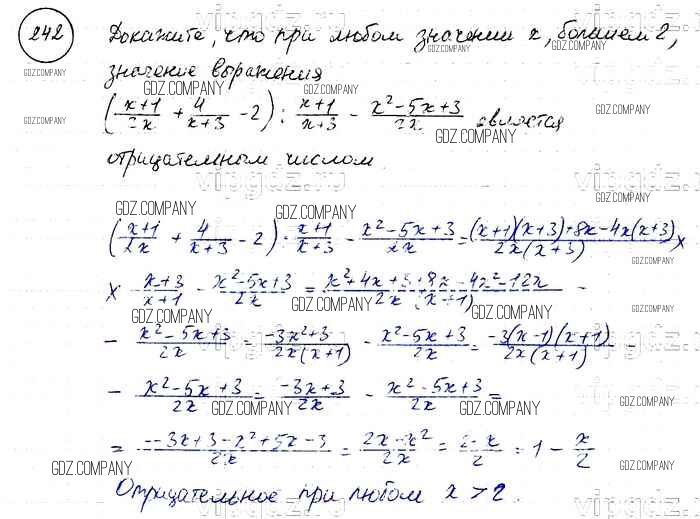 242 Докажите, что при любом значении x, большем 2,
значение выражения
((x+1)/(2x) + 4/(x+3) - 2) : (x+1)/(x+3) - (x²-5x+3)/(2x) является
отрицательным числом
((x+1)/(2x) + 4/(x+3) - 2) : (x+1)/(x+3) - (x²-5x+3)/(2x) = ((x+1)(x+3)+8x-4x(x+3))/(2x(x+3)) ×
× (x+3)/(x+1) - (x²-5x+3)/(2x) = (x²+4x+3+8x-4x²-12x)/(2x(x+1)) -
- (x²-5x+3)/(2x) = (-3x²+3)/(2x(x+1)) - (x²-5x+3)/(2x) = (-3(x-1)(x+1))/(2x(x+1)) -
- (x²-5x+3)/(2x) = (-3x+3)/(2x) - (x²-5x+3)/(2x) =
= (-3x+3-x²+5x-3)/(2x) = (2x-x²)/(2x) = (2-x)/2 = 1 - x/2
Отрицательное при любом x > 2.
GDZ.COMPANY
vipgdz.ru